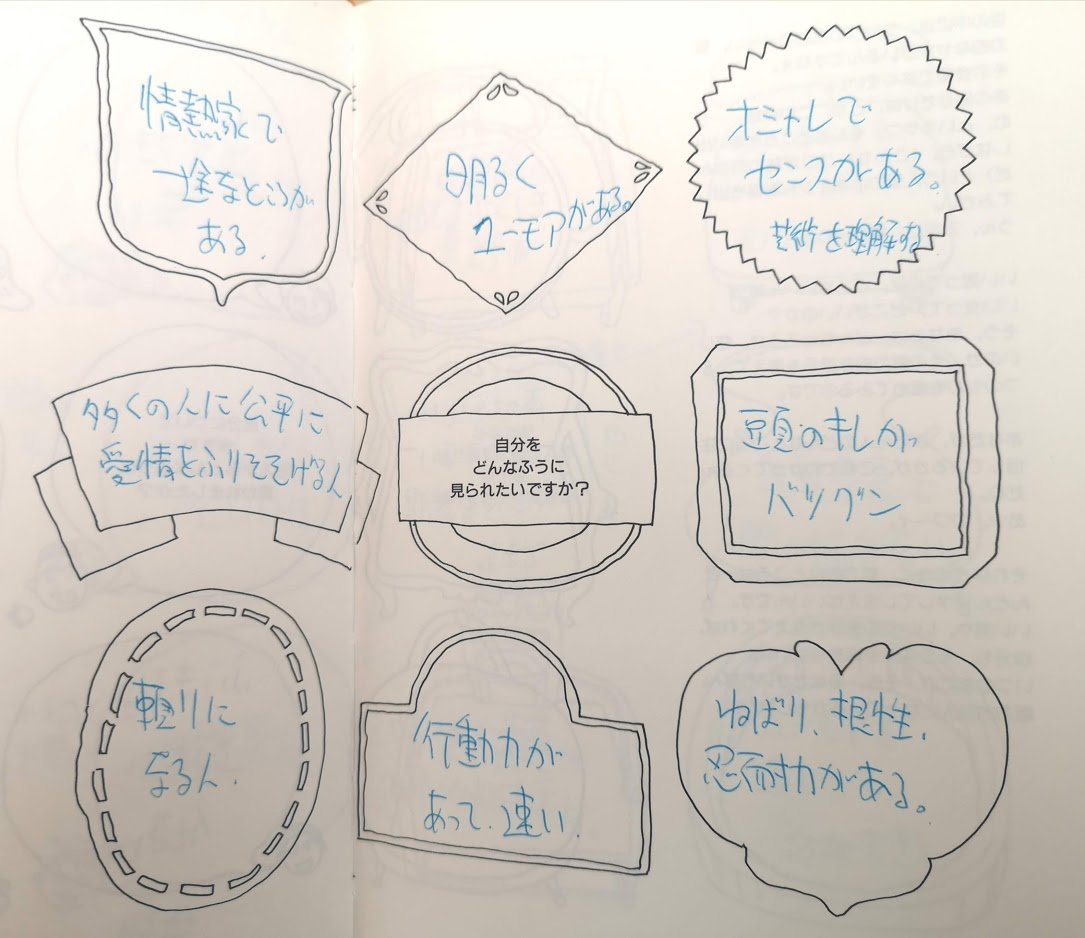 情熱家で
一途なところが
ある.
明るく
ユーモアがある。
オシャレで
センスがある。
芸術を理解する
多くの人に公平に
愛情をふりそそげる人
自分を
どんなふうに
見られたいですか?
頭のキレが
バツグン
頼りに
なる人.
行動力が
あって、速い.
ねばり、根性、
忍耐力がある。